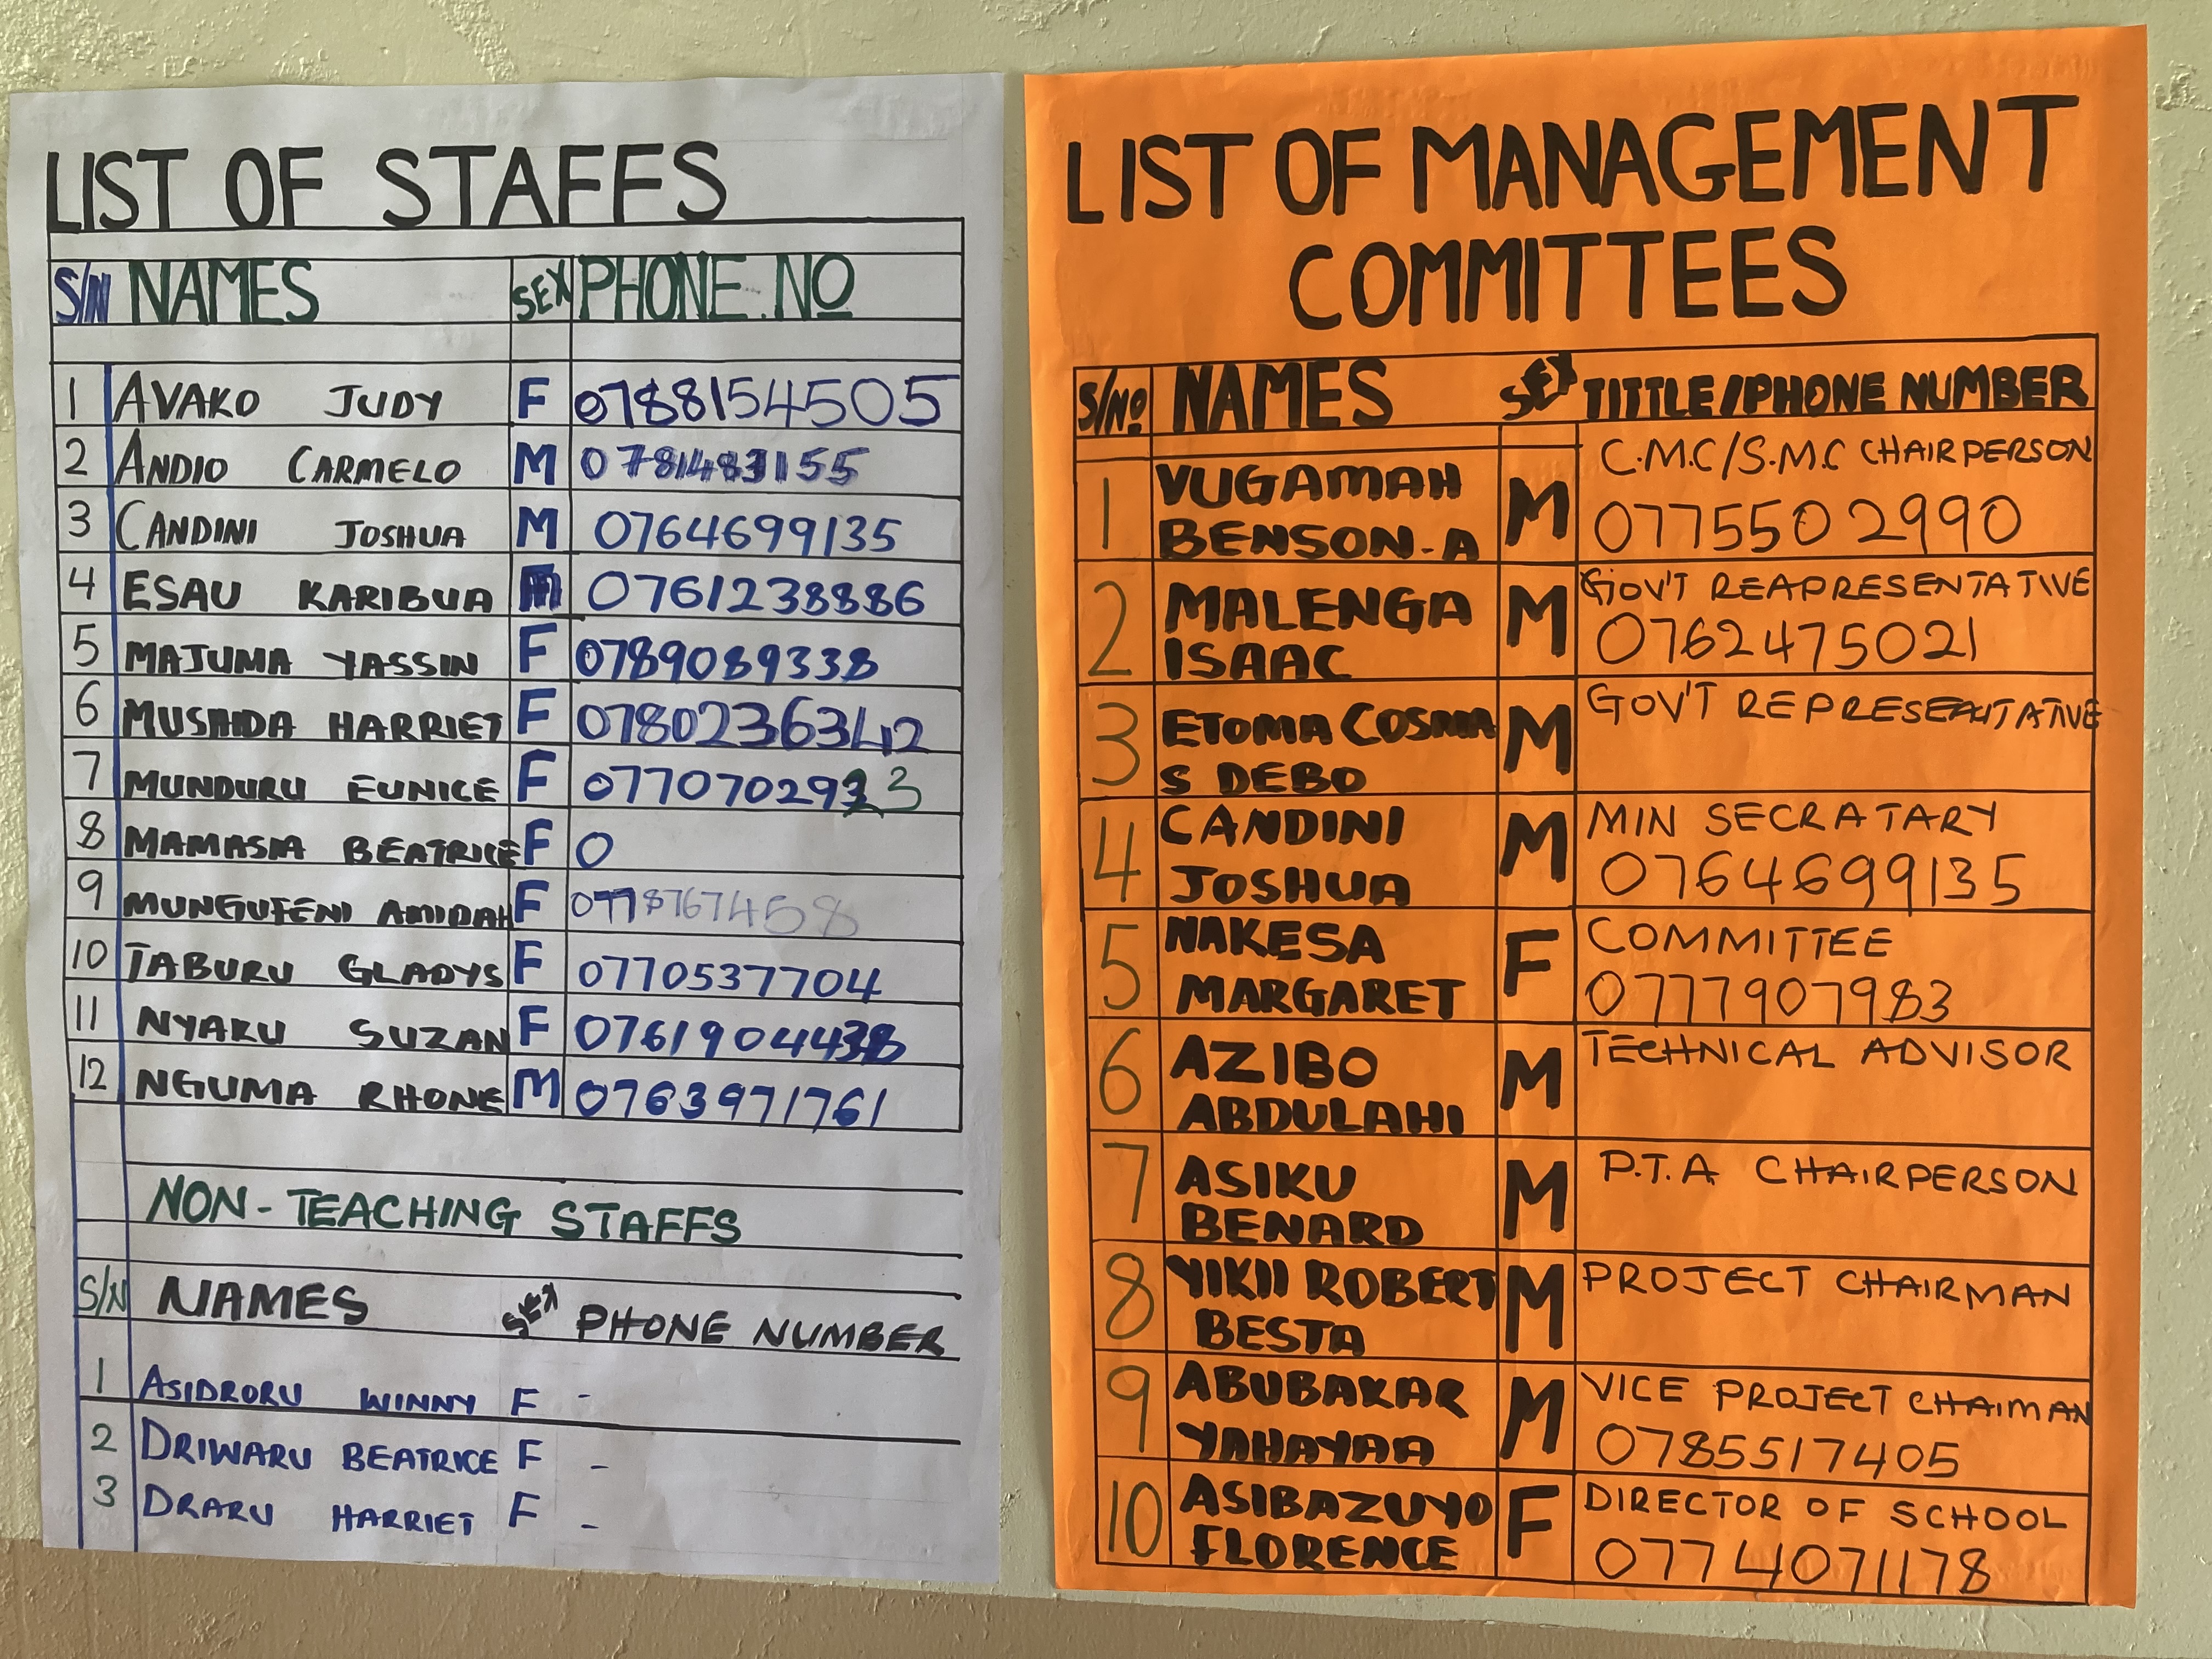 LIST OF STAFFS
S/N NAMES SEX PHONE.NO
1 AVAKO JUDY F 0788154505
2 ANDIO CARMELO M
3 CANDINI JOSHUA M 0764699135
4 ESAU KARIBUA M 0761238886
5 MAJUMA YASSIN F 0789089338
6 MUSHDA HARRIET F 0780236342
7 MUNDURU EUNICE F
8 MAMASIA BEATRICE F 0
9 MUNGUFENI AMIDAH F 0778767458
10 TABURU GLADYS F 0770537704
11 NYAKU SUZAN F
12 NGUMA RHONE M 0763971761
NON-TEACHING STAFFS
S/N NAMES SEX PHONE NUMBER
1 ASIDRORU WINNY F -
2 DRIWARU BEATRICE F -
3 DRARU HARRIET F -
LIST OF MANAGEMENT
COMMITTEES
S/No NAMES SEX TITTLE/PHONE NUMBER
1 VUGAMAH BENSON-A M C.M.C/S.M.C CHAIRPERSON
0775502990
2 MALENGA ISAAC M GOV'T REAPRESENTATIVE
0762475021
3 ETOMA COSMA S DEBO M GOV'T
4 CANDINI JOSHUA M MIN SECRATARY
0764699135
5 NAKESA MARGARET F COMMITTEE
0777907983
6 AZIBO ABDULAHI M TECHNICAL ADVISOR
7 ASIKU BENARD M P.T.A CHAIRPERSON
8 YIKII ROBERT BESTA M PROJECT CHAIRMAN
9 ABUBAKAR YAHAYAA M VICE PROJECT CHAIMAN
0785517405
10 ASIBAZUYO FLORENCE F DIRECTOR OF SCHOOL
0774071178